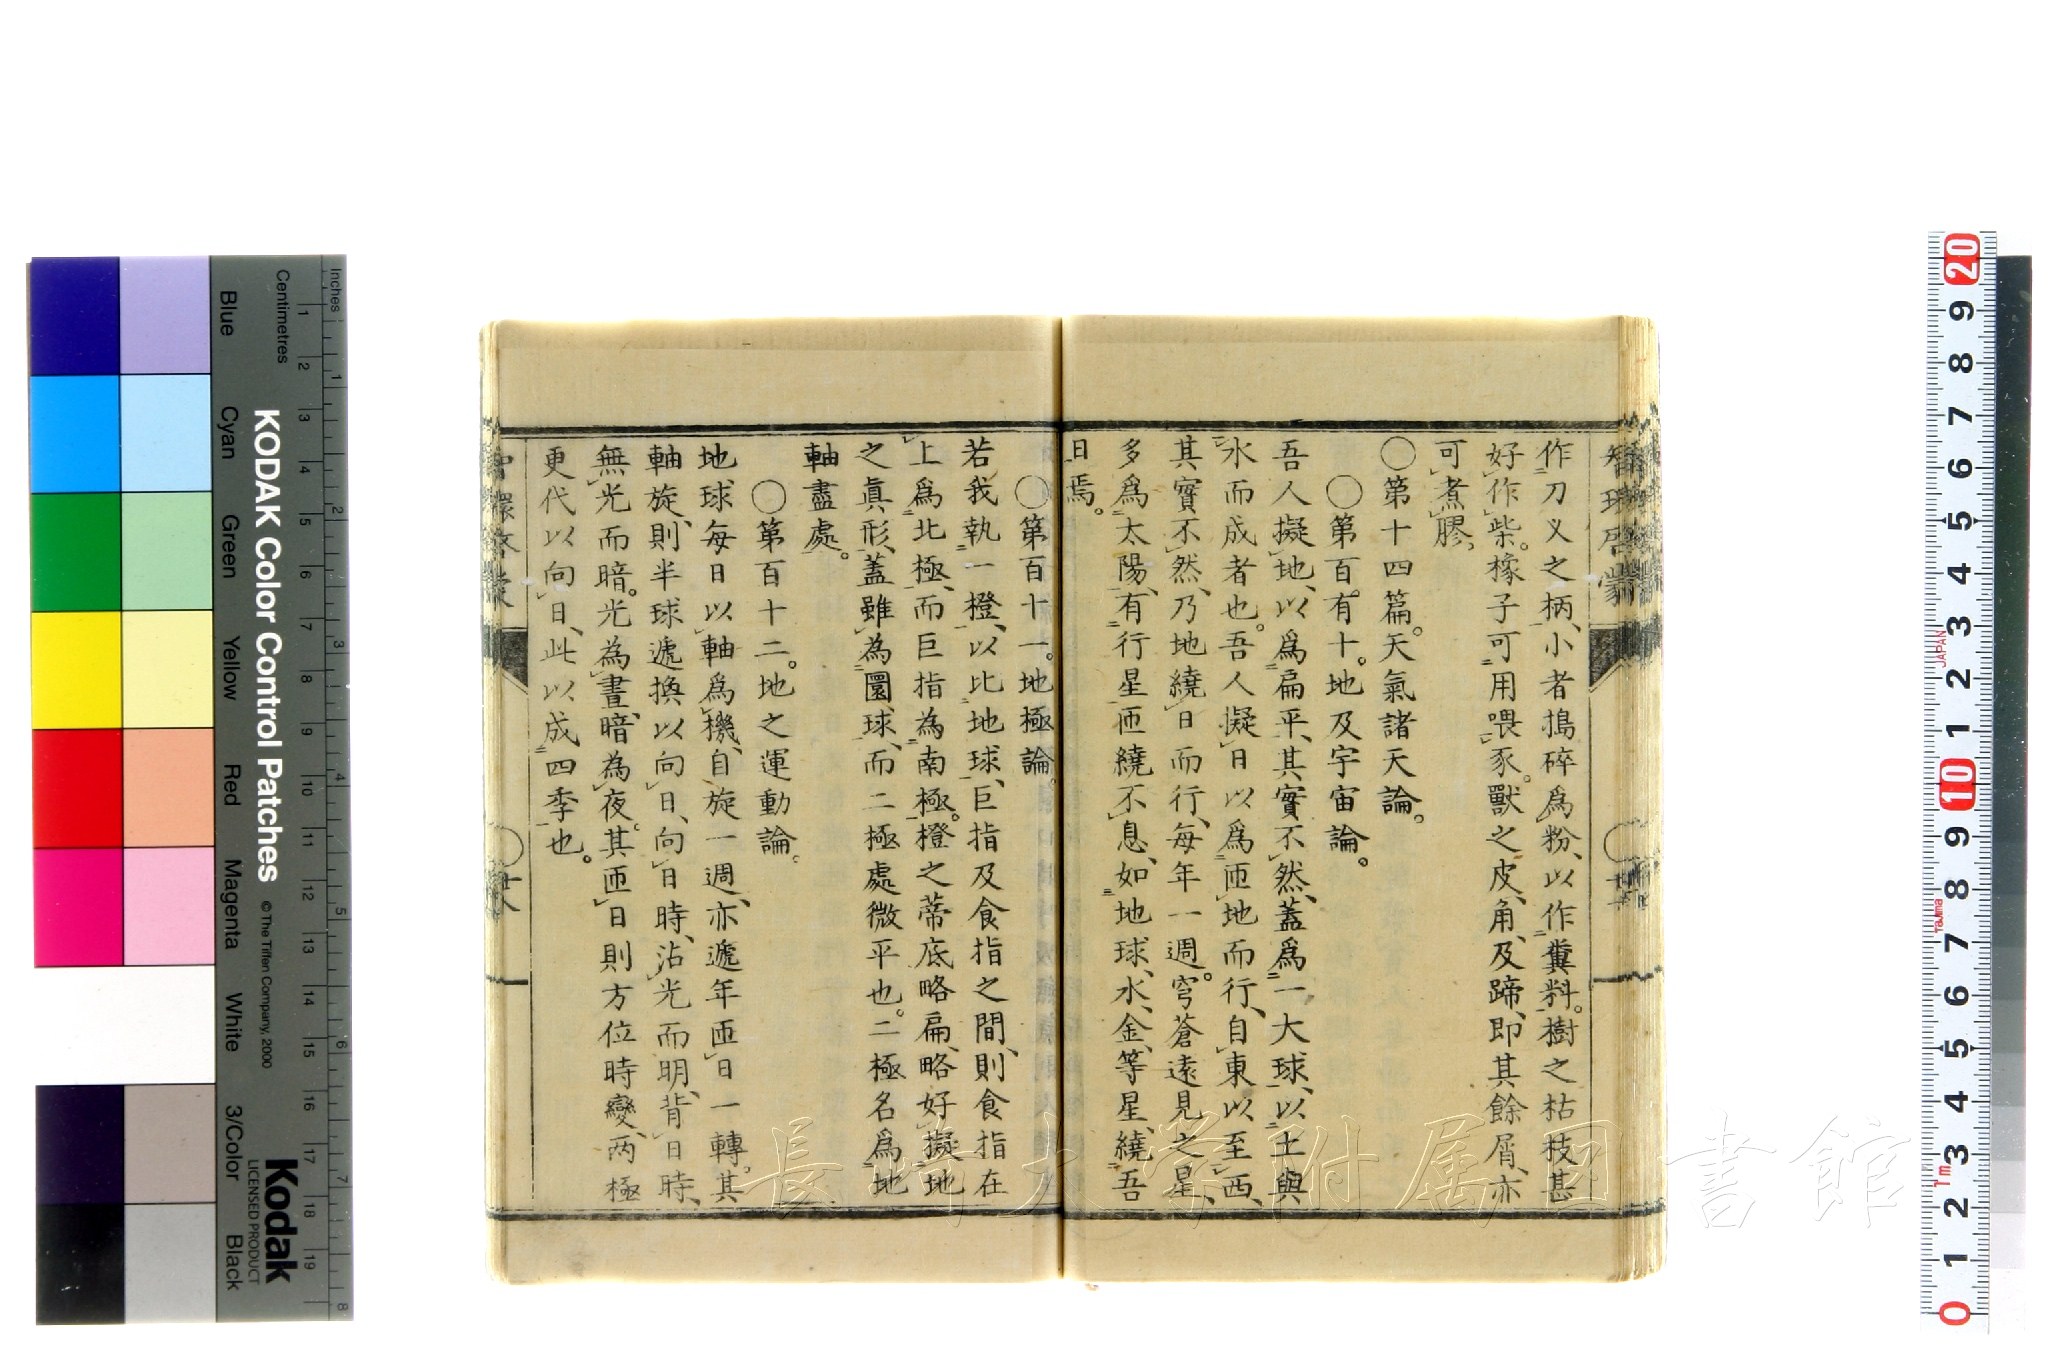 作刀义之柄、小者搗碎爲粉、以作糞料。樹之枯枝甚
好作柴。橡子可用喂豕。獸之皮、角、及蹄、即其餘屑、亦
可煮膠。
〇第十四篇。天氣諸天論。
〇第百有十。地及宇宙論。
吾人擬地、以爲扁平、其實不然、蓋爲一大球、以土與
水而成者也。吾人擬日以爲匝地而行、自東以至西、
其實不然、乃地繞日而行、每年一週。穹蒼遠見之星、
多爲太陽、有行星匝繞不息、如地球、水、金、等星、繞吾
日焉。
〇第百十一。地極論。
若我執一橙、以比地球、巨指及食指之間、則食指在
上爲北極、而巨指為南極。橙之蒂底略扁、略好擬地
之眞形、蓋雖為圜球、而二極處微平也。二極名爲地
軸盡處。
〇第百十二。地之運動論。
地球每日以軸爲機、自旋一週、亦遞年匝日一轉。其
軸旋、則半球遞換以向日、向日時、沾光而明、背日時、
無光而暗。光為晝、暗為夜。其匝日則方位時變、两極
更代以向日、此以成四季也。
智環啓蒙
長崎大学附属図書館
KODAK Color Control Patches
© The Tiffen Company, 2000
Kodak
LICENSED PRODUCT
Inches 1 2 3 4 5 6 7 8
Centimetres 1 2 3 4 5 6 7 8 9 10 11 12 13 14 15 16 17 18 19
Blue Cyan Green Yellow Red Magenta White 3/Color Black
20 9 8 7 6 5 4 3 2 1 10 9 8 7 6 5 4 3 2 1 0
JAPAN
Tajima
1m